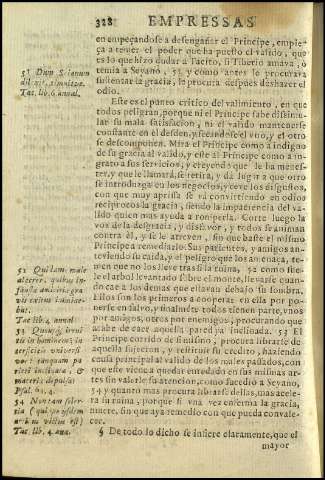 328 EMPRESSAS
en empeçandose a desengañar el Principe, empie-
ça a temer el poder que ha puesto el valido, que
es lo que hizo dudar a Tacito, si Tiberio amava, ò
temia a Seyano, 51 y como antes le procurava
sustentar la gracia, le procura despues deshazer el
odio.
Este es el punto critico del valimiento, en que
todos peligran, porque ni el Principe sabe dissimu-
lar su mala satisfacion, ni el valido mantenerse
constante en el desden, y secandose el uno, y el otro
se descomponen. Mira el Principe como a indigno
de su gracia al valido, y este al Principe como a in-
grato a sus servicios, y creyendo que le ha menes-
ter, y que le llamarà, se retira, y dà lugar a que otro
se introduzga en los negocios, y ceve los disgustos,
con que muy aprissa se va convirtiendo en odios
reciprocos la gracia, siendo la impaciencia del va-
lido quien mas ayuda a romperla. Corre luego la
voz de la desgracia, y disfavor, y todos se animan
contra èl, y se le atreven, sin que baste el mismo
Principe a remediarlo. Sus parientes, y amigos an-
teviendo su caida, y el peligro que los amenaça, te-
men que no los lleve tras si la ruina, 52 como sue-
le el arbol levantado sobre el monte, llevarse quan-
tos a los demas que estavan debajo su sombra.
Ellos son los primeros a cooperar en ella por po-
nerse en salvo, y finalmente todos tienen parte, unos
por amigos, otros por enemigos, procurando que
acabe de caer aquella pared ya inclinada. 53 El
Principe corrido de si mismo, procura librarse de
aquella sujecion, y restituir su credito, haziendo
causa principal al valido de los males passados, con
que este viene a quedar enredado en sus mismas ar-
tes sin valerle su atencion, como sucedio a Seyano,
54 y quanto mas procura librarse dellas, mas acele-
ra su ruina, porque si una vez enferma la gracia,
muere, sin que aya remedio con que pueda convale-
cer.
§ De todo lo dicho se infiere claramente, que el
mayor
51 Dum Seianum
dilexit, timuitve.
Tac. lib. 6. annal.
52 Quidam male
alacres, quibus in-
fausta amicitiæ gra-
vis exitus imminе-
bat.
Tac. lib. 4. annal.
53 Quousque irrui-
tis in hominem; in-
terficitis universi
vos: tanquam pa-
rieti inclinato, &
maceriæ depulsæ
Psal. 61. 4.
54 Non tam soler-
tia (quippe iisdem
artibus victus est)
Tac. lib. 4. ann.